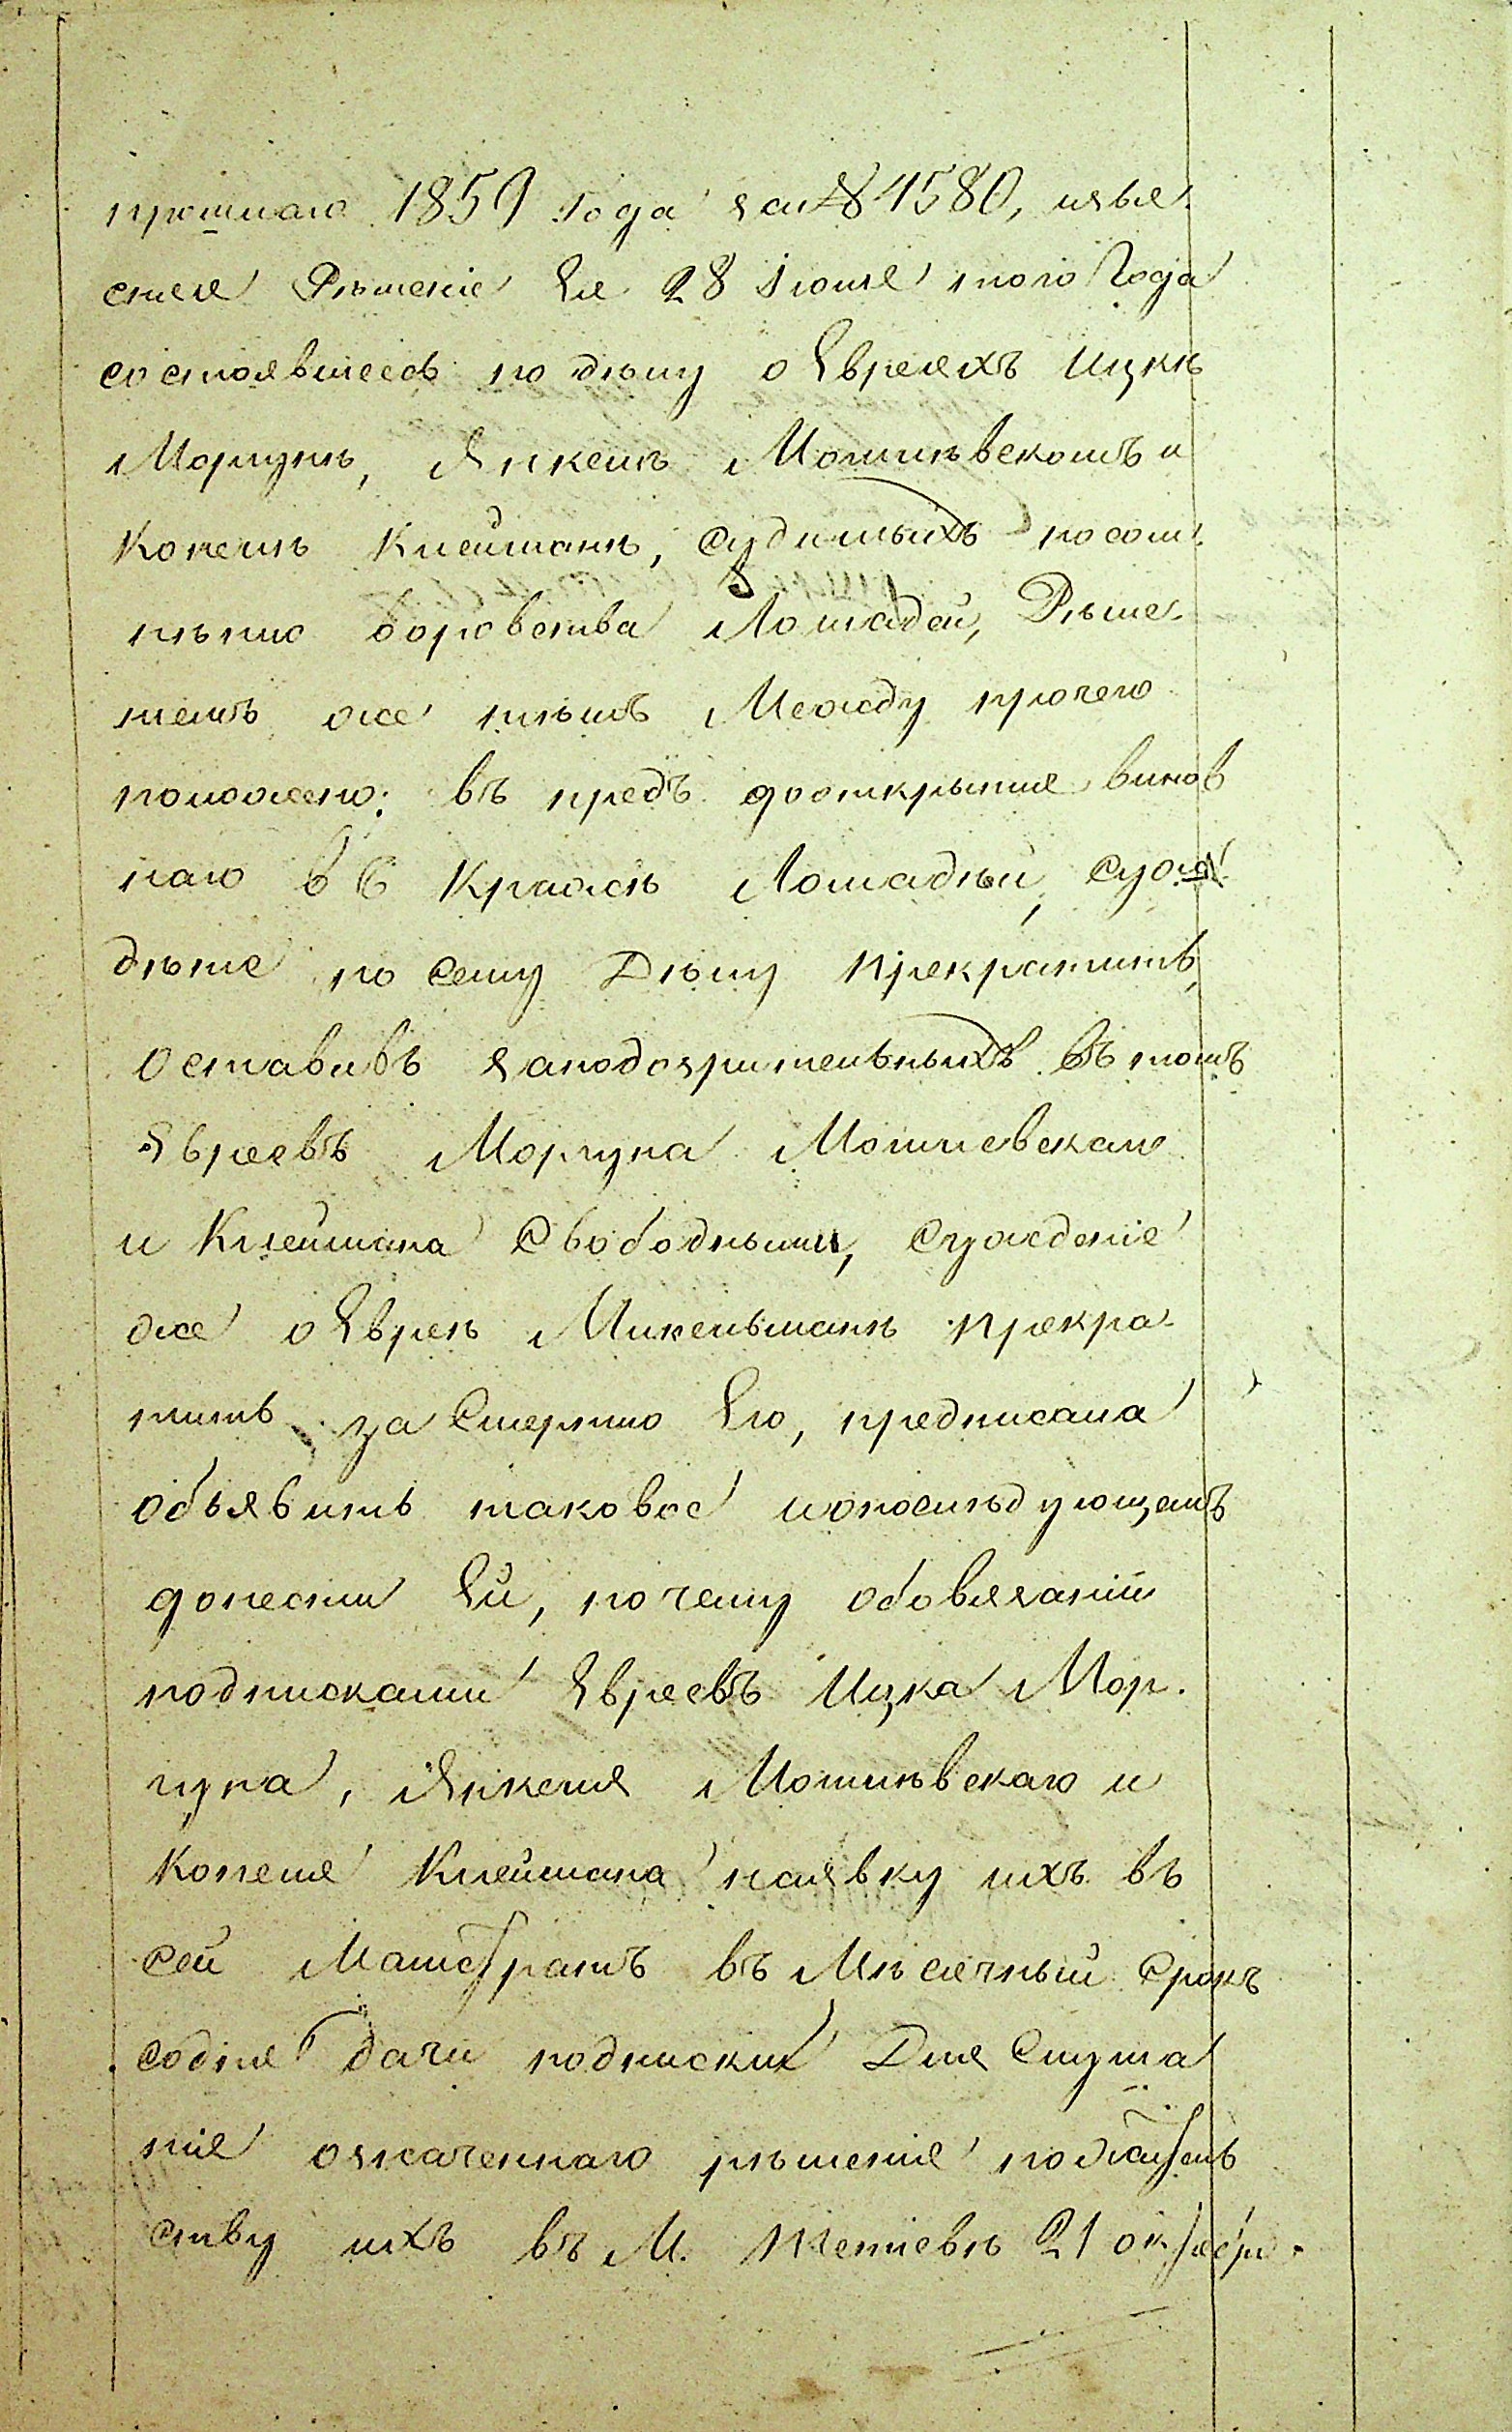 прошлаго 1859 года за № 4580, изъя
снея Рѣшеніе Ея 28 Іюля того года
состоявшееся по дѣлу о Евреяхъ Ицкѣ
Моргунѣ, Янкелѣ Мошнѣвскомъ и
Копелѣ Клейманѣ, судимыхъ по сом
нѣнію воровства Лошадей, Рѣше
ніемъ же тѣмъ Между прочего
положено: въ предъ до открытія винов
наго въ Кражѣ Лошадѣй, суж
дѣніе по сему Дѣлу прекратить,
оставивъ заподозрительныхъ въ томъ
Евреевъ Моргуна Мошневскаго
и Клеймана Свободными, сужденіе
же о Евреѣ Микельманѣ прекра
тить за Смертію Его, предписала
объявить таковое и опослѣдующемъ
донести Ей, почему обовязаніи
подписками Евреевъ Ицка Мор.
гуна, Янкеля Мошнѣвскаго и
Копеля Клеймана наявку ихъ въ
сей Магистратъ въ Мѣсячный Срокъ
содня дачи подписки Для Слуша
нія означеннаго рѣшенія по жител
ству ихъ въ М. Тетіевѣ 21 октября